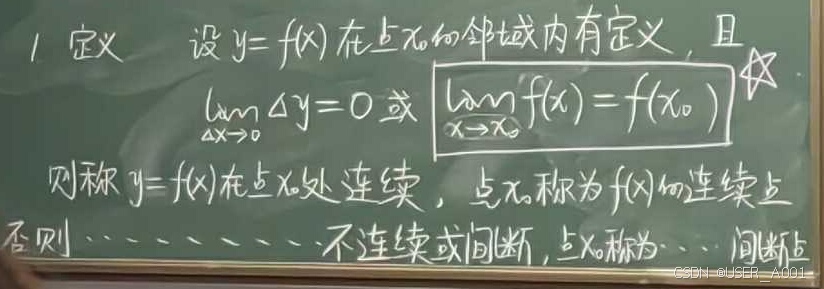 1 定义 设 y=f(x) 在点x₀的邻域内有定义，且
lim Δx→0 Δy=0 或 lim x→x₀ f(x)=f(x₀) ☆
则称 y=f(x) 在点x₀处连续，点x₀称为f(x)的连续点
否则··········不连续或间断，点x₀称为····间断点
CSDN @USER_A001